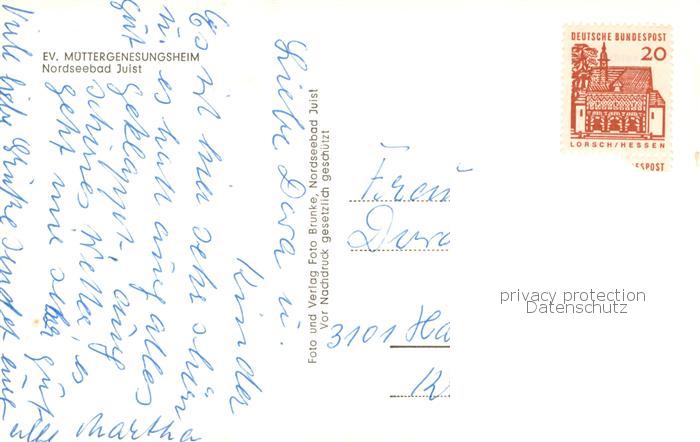 EV. MÜTTERGENESUNGSHEIM
Nordseebad Juist
Liebe Dora u.
Kinder
Es ist hier sehr schön
u. es hat auch alles
gut geklappt. auch
schönes Wetter, es
geht mir sehr gut
Viele liebe Grüße sendet euch
alle Martha
Foto und Verlag Foto Brunke, Nordseebad Juist
Vor Nachdruck gesetzlich geschützt
DEUTSCHE BUNDESPOST
20
LORSCH/HESSEN
ESPOST
Frau
Dora
3101 Ha
privacy protection
Datenschutz